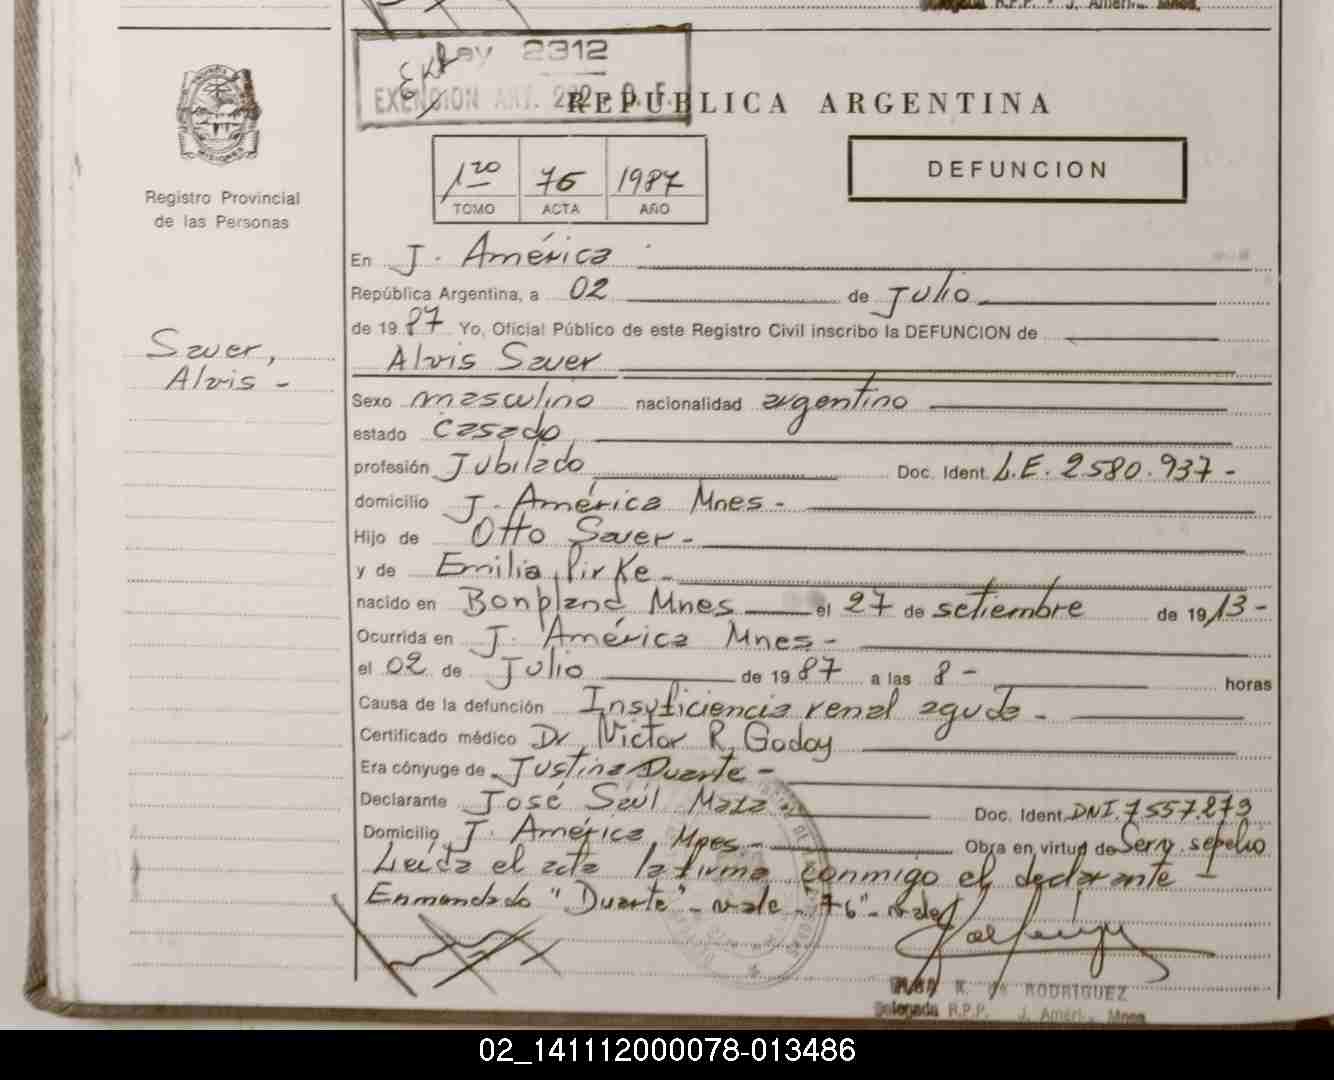 Delegada R.P.P. - J. Améri., Mnes.
Ley 2312
EXENCION ART. 222
REPUBLICA ARGENTINA
Registro Provincial
de las Personas
1ro 76 1987
TOMO ACTA AÑO
DEFUNCION
En J. América
República Argentina, a 02 de Julio
de 1987 Yo, Oficial Público de este Registro Civil inscribo la DEFUNCION de
Alvis Sauer
Sauer,
Alvis -
Sexo masculino nacionalidad argentino
estado casado
profesión Jubilado Doc. Ident. L.E. 2580.937-
domicilio J. América Mnes -
Hijo de Otto Sauer -
y de Emilia Pirke -
nacido en Bonpland Mnes el 27 de setiembre de 1913-
Ocurrida en J. América Mnes -
el 02 de Julio de 1987 a las 8- horas
Causa de la defunción Insuficiencia renal aguda -
Certificado médico Dr. Victor R. Godoy
Era cónyuge de Justina Duarte -
Declarante José Saúl Maza - Doc. Ident. DNI. 7557.273
Domicilio J. América Mnes - Obra en virtud de Serv. sepelio
Leida el acta la firma conmigo el declarante -
Enmendado "Duarte" - vale - "76" - vale
RODRIGUEZ
Delegada R.P.P. J. Améri., Mnes
02_141112000078-013486